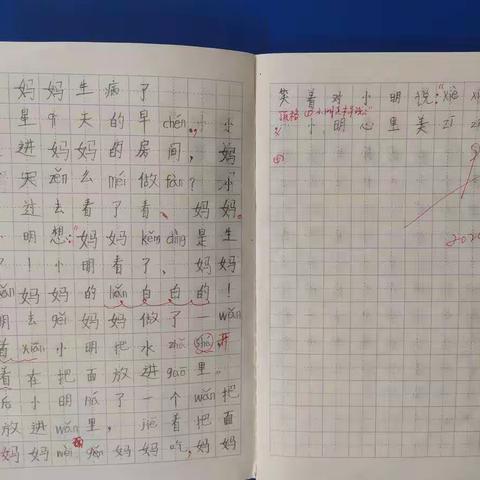 妈妈生病了
星qī天的早chén,小
进妈妈的房间,妈
天zěn么méi做fàn?小
过去看了看、妈妈
明想:“妈妈kěn dìng是生
了!小明看了、妈妈
妈妈的liǎn白白的!
明去gěi妈妈做了一wǎn
首xiān小明把水zhǔ
看在把面放进guō里。
后小明ná了一个wǎn把
放进wǎn里,jiē着把面
妈妈gěi妈妈吃,妈妈
笑着对小明说:“xiè
小明心里美zī zī
2020